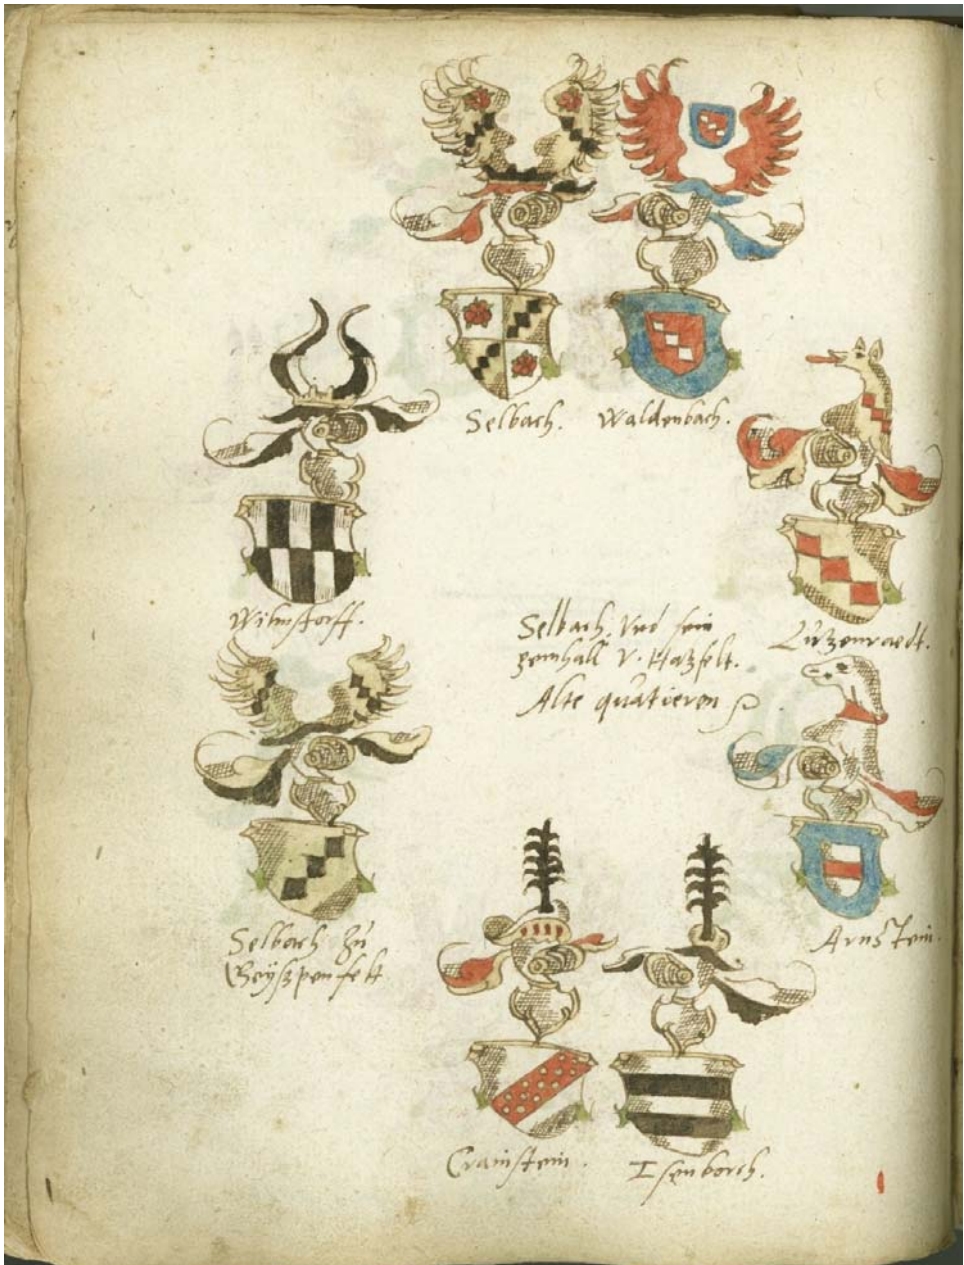 Selbach. Waldenbach.
Wilmstorff.
Selbach, Vnd sein
gemhall V. Hatzfelt.
Alte quatieren
Lutzenraedt.
Selbach zu
Arnstein.
Crainstein. Isenborch.